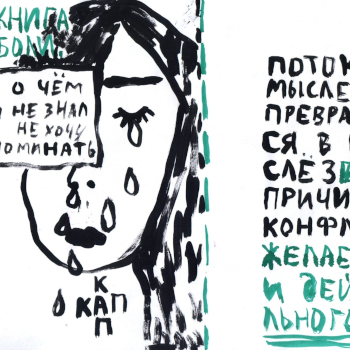 КНИГА
БОЛИ.
О ЧЁМ
НЕ ЗНАЛ
НЕ ХОЧУ
ПОМИНАТЬ
КАП
КАП
ПОТОК
МЫСЛЕ
ПРЕВРА
СЯ В
СЛЁЗ
ПРИЧИ
КОНФЛ
ЖЕЛАЕ
И ДЕЙ
ЛЬНОГО